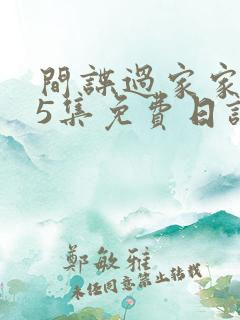 間諜過家家
5集免費日語
鄭敏雅
未經同意禁止轉載